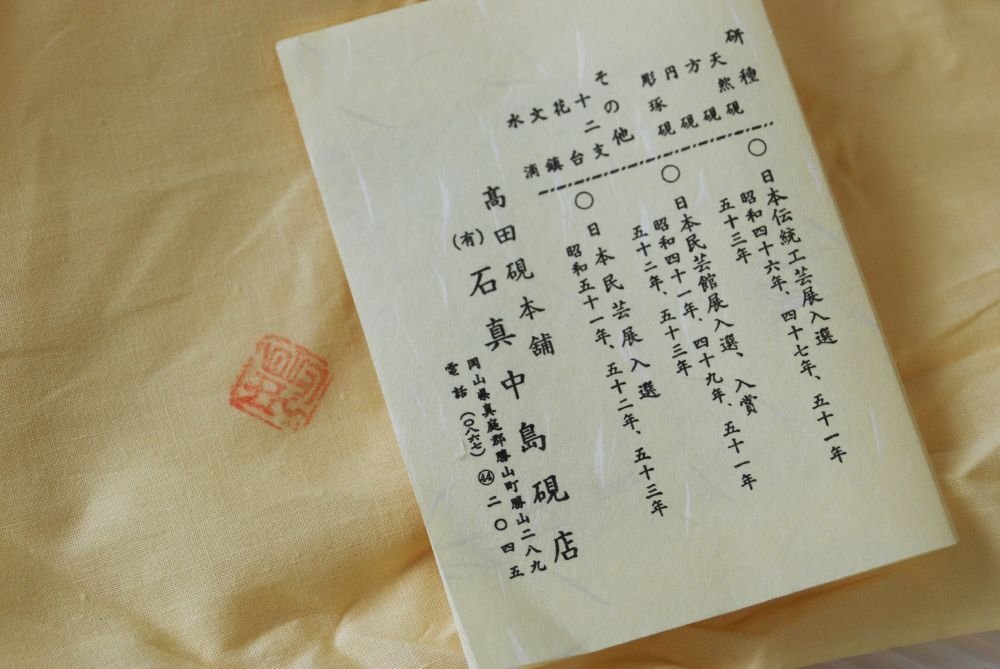 研種
天然硯
方硯
円硯
彫琢硯
その他
十二支
花台
文鎮
水滴
○日本伝統工芸展入選
昭和四十六年、四十七年、五十一年
五十三年
○日本民芸館展入選、入賞
昭和四十一年、四十九年、五十一年
五十二年、五十三年
○日本民芸展入選
昭和五十一年、五十二年、五十三年
髙田硯本舗
(有)石真中島硯店
岡山県真庭郡勝山町勝山二八九
電話(〇八六七)㊹二〇四五